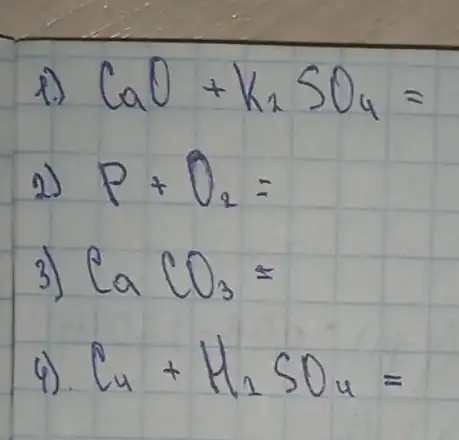 1) CaO + K₂SO₄ =
2) P + O₂ =
3) CaCO₃ =
4). Cu + H₂SO₄ =